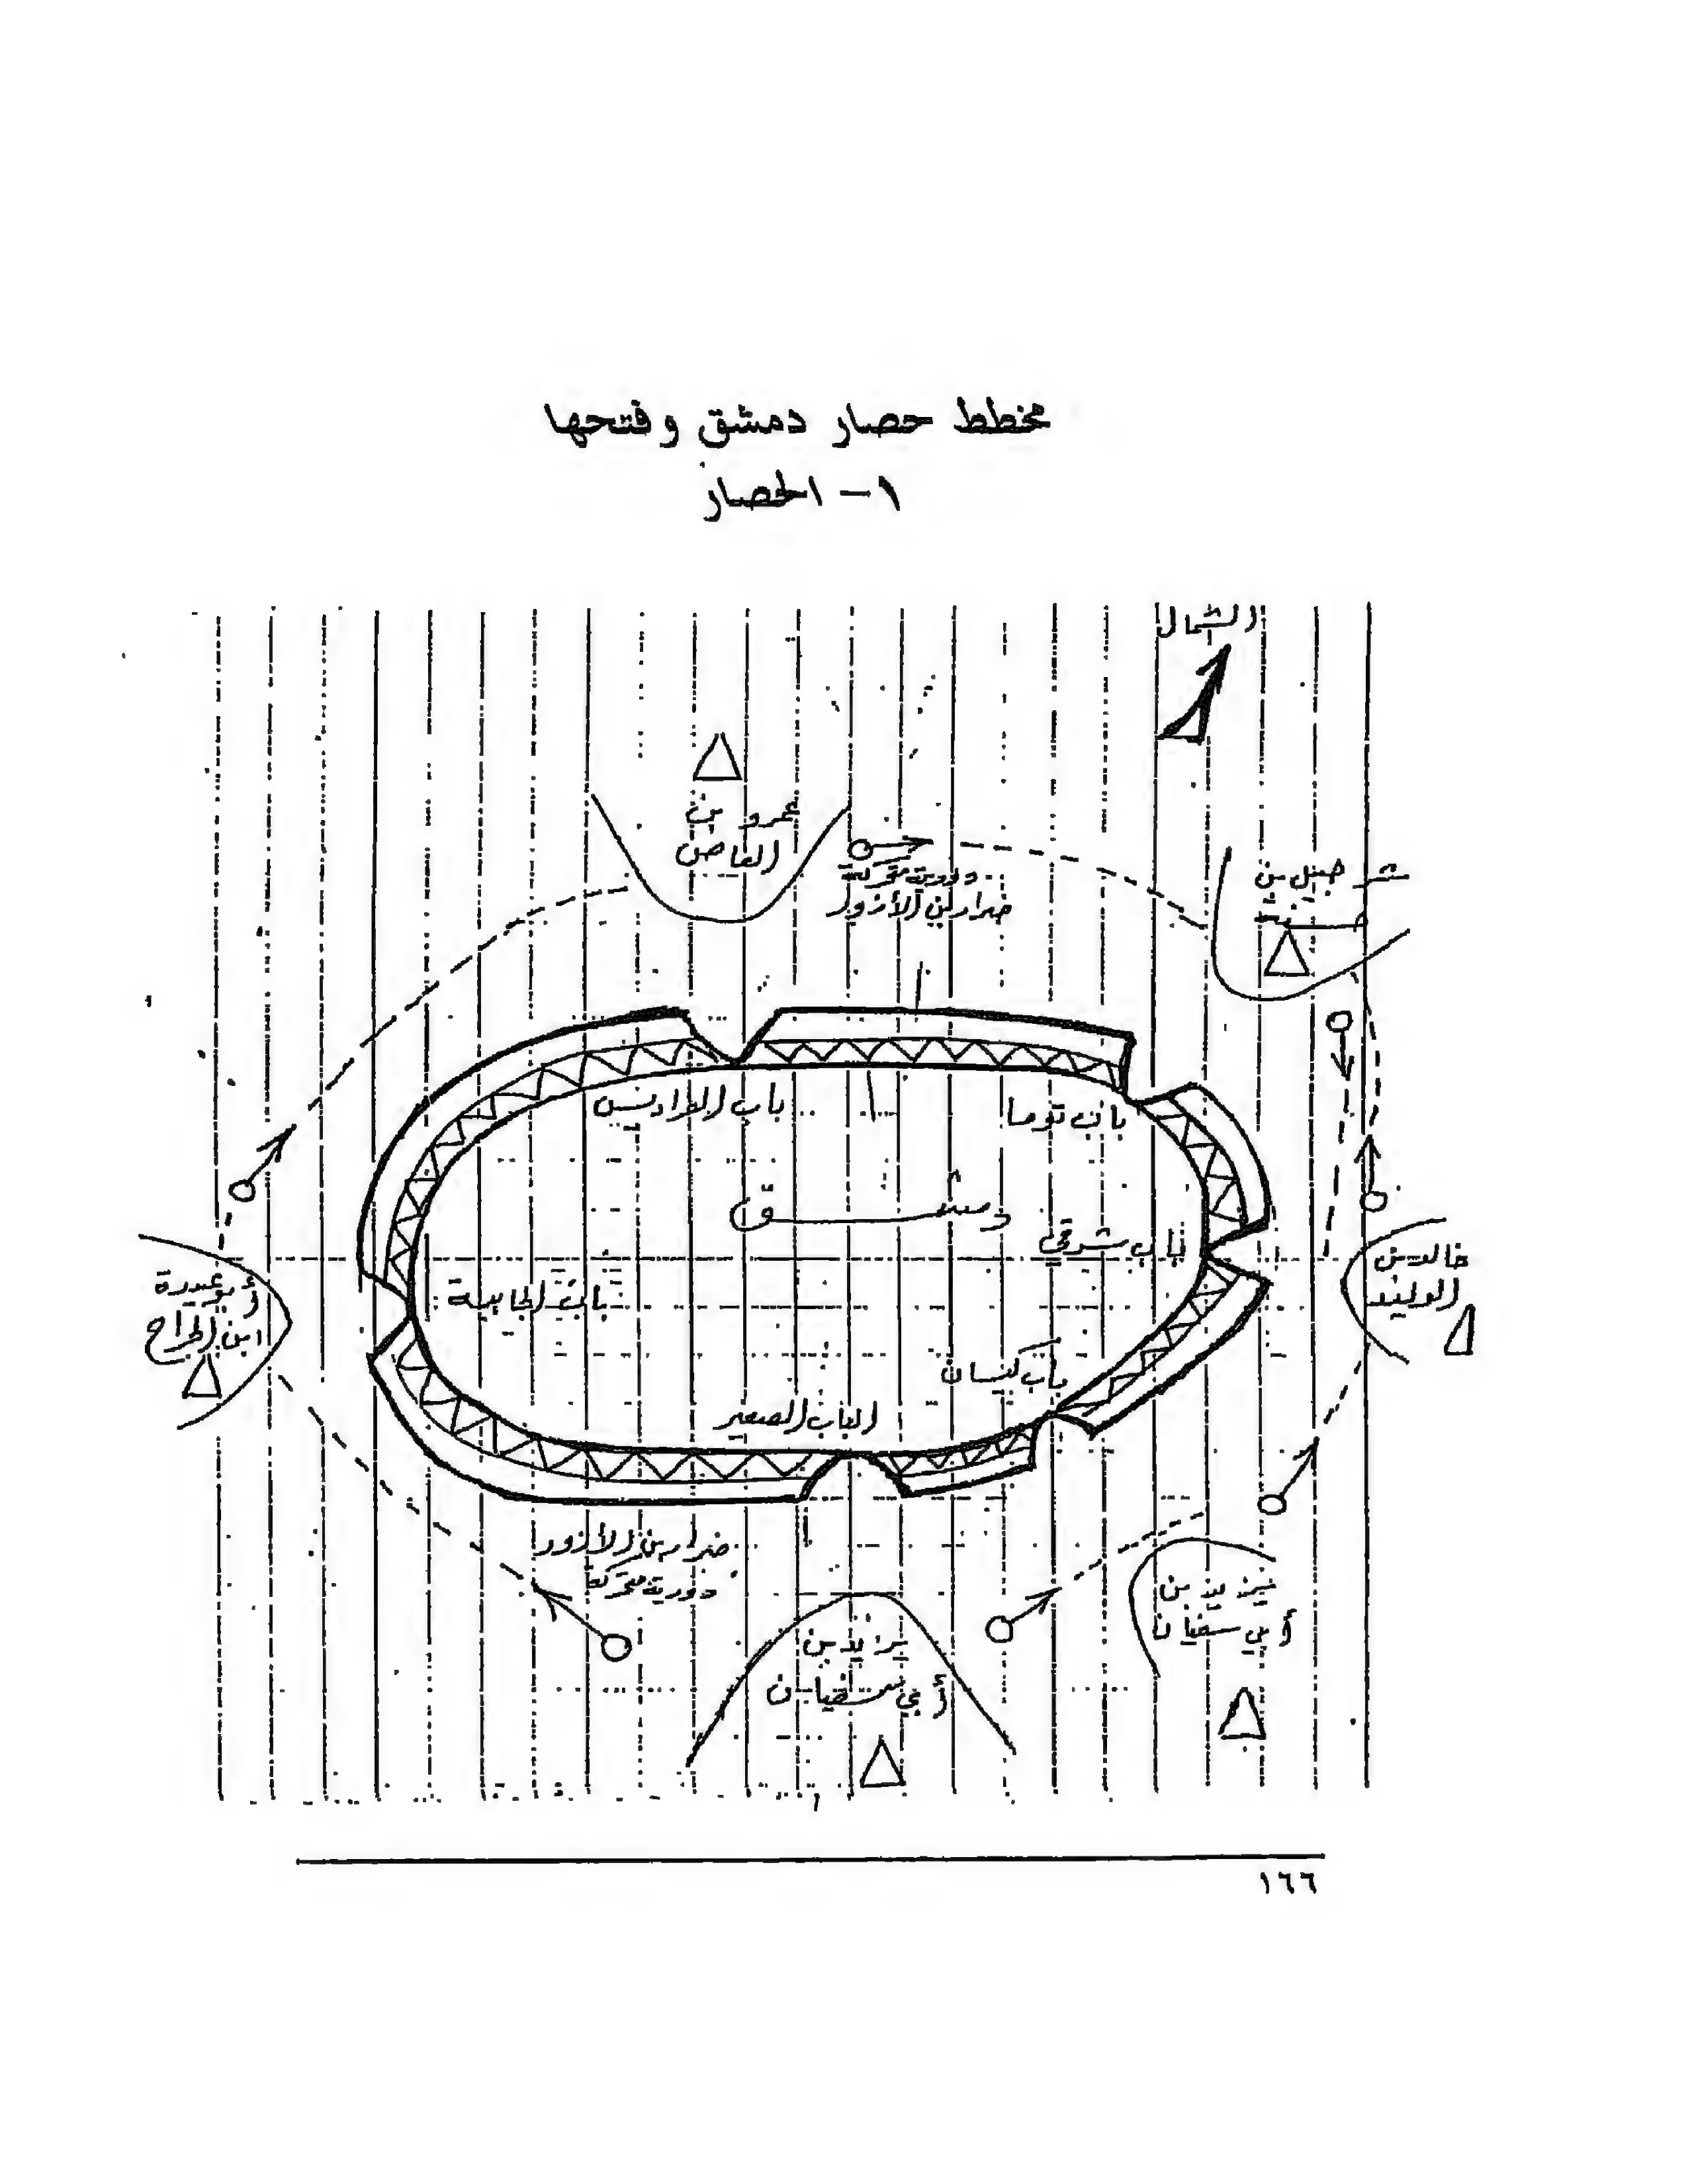 مخطط حصار دمشق وفتحها
١- الحصار
الشمال
عمرو بن
العاص
دورية متحركة
ضرار بن الأزور
شرحبيل بن
حسنة
باب الفراديس
باب توما
دمشق
باب شرقي
خالد بن
الوليد
أبو عبيدة
ابن الجراح
باب الجابية
باب كيسان
الباب الصغير
ضرار بن الأزور
دورية متحركة
يزيد بن
أبي سفيان
يزيد بن
أبي سفيان
١٦٦